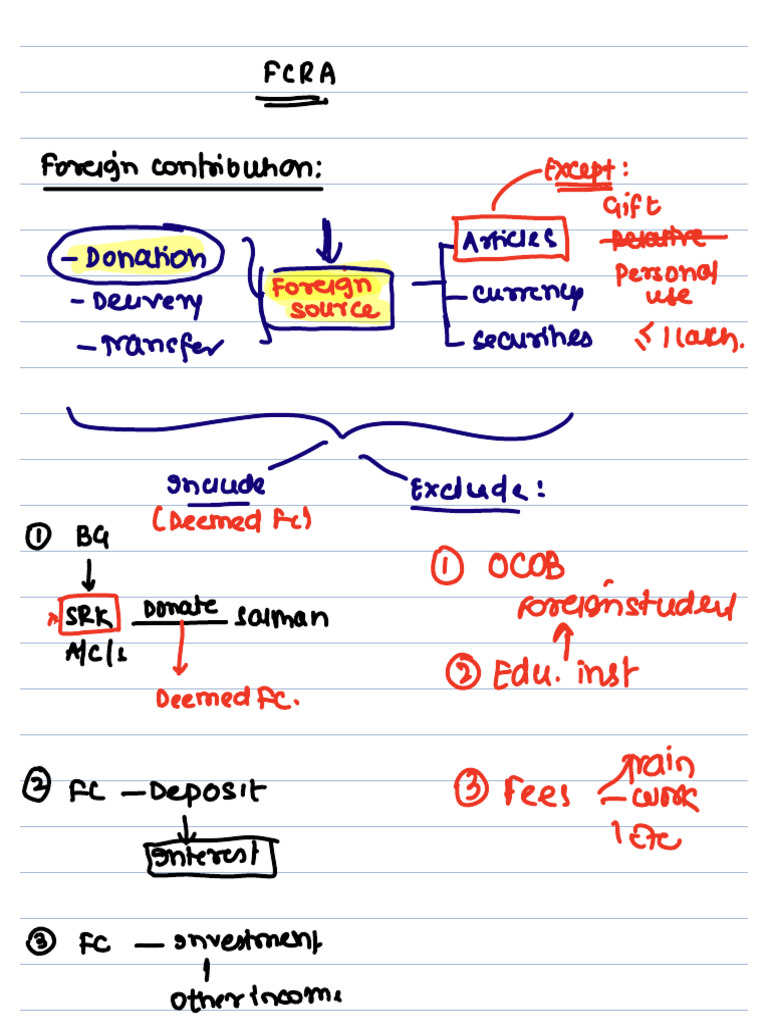 FCRA
Foreign contribution:
Except:
Gift
Relative
Personal
use
≤ 1 lakh.
- Donation
- Delivery
- Transfer
Foreign
source
Articles
- currency
- securities
Include
(Deemed FC)
Exclude:
① BG
SRK Donate Salman
A/C/s
Deemed FC.
① OCOB
Foreign student
② Edu. inst
② FC - Deposit
Interest
③ Fees
Train
- work
Etc
③ FC - Investment
Other income